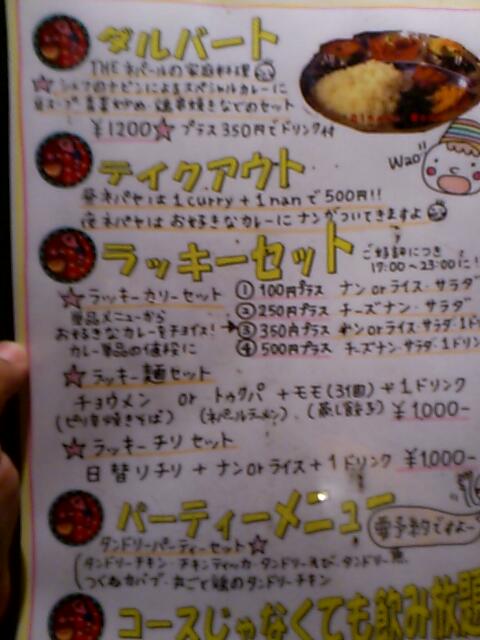 ダルバート
THE ネパールの家庭料理
シェフのナビンによるスペシャルカレーに
豆スープ・青菜炒め・鶏串焼きなどのセット
¥1200 プラス350円でドリンク付
テイクアウト
昼ネパセは1curry+1nanで500円!!
夜ネパセはお好きなカレーにナンがついてきますよ
Wao''
ラッキーセット
ご好評につき
17:00〜23:00に!
ラッキーカリーセット
単品メニューから
お好きなカレーをチョイス!→
カレー単品の値段に
① 100円プラス ナンorライス・サラダ
② 250円プラス チーズナン・サラダ
③ 350円プラス ナンorライス・サラダ・1ド
④ 500円プラス チーズナン・サラダ・1ドリン
ラッキー麺セット
チョウメン or トゥクパ +モモ(3個)+1ドリンク
(ピリ辛焼きそば) (ネパールラーメン) (蒸し餃子) ¥1000-
ラッキーチリセット
日替リチリ+ナンorライス+1ドリンク ¥1,000-
パーティーメニュー
要予約ですよ〜
タンドリーパーティーセット
タンドリーチキン・チキンティッカ・タンドリーえび・タンドリー
つくねカバブ・丸ごと鶏のタンドリーチキン
コースじゃなくても飲み放題